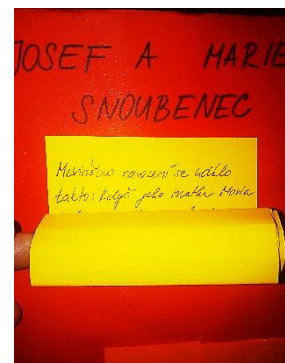 JOSEF A MARIE
SNOUBENEC
Mesiášovo narození se událo
takto: když jeho matka Maria